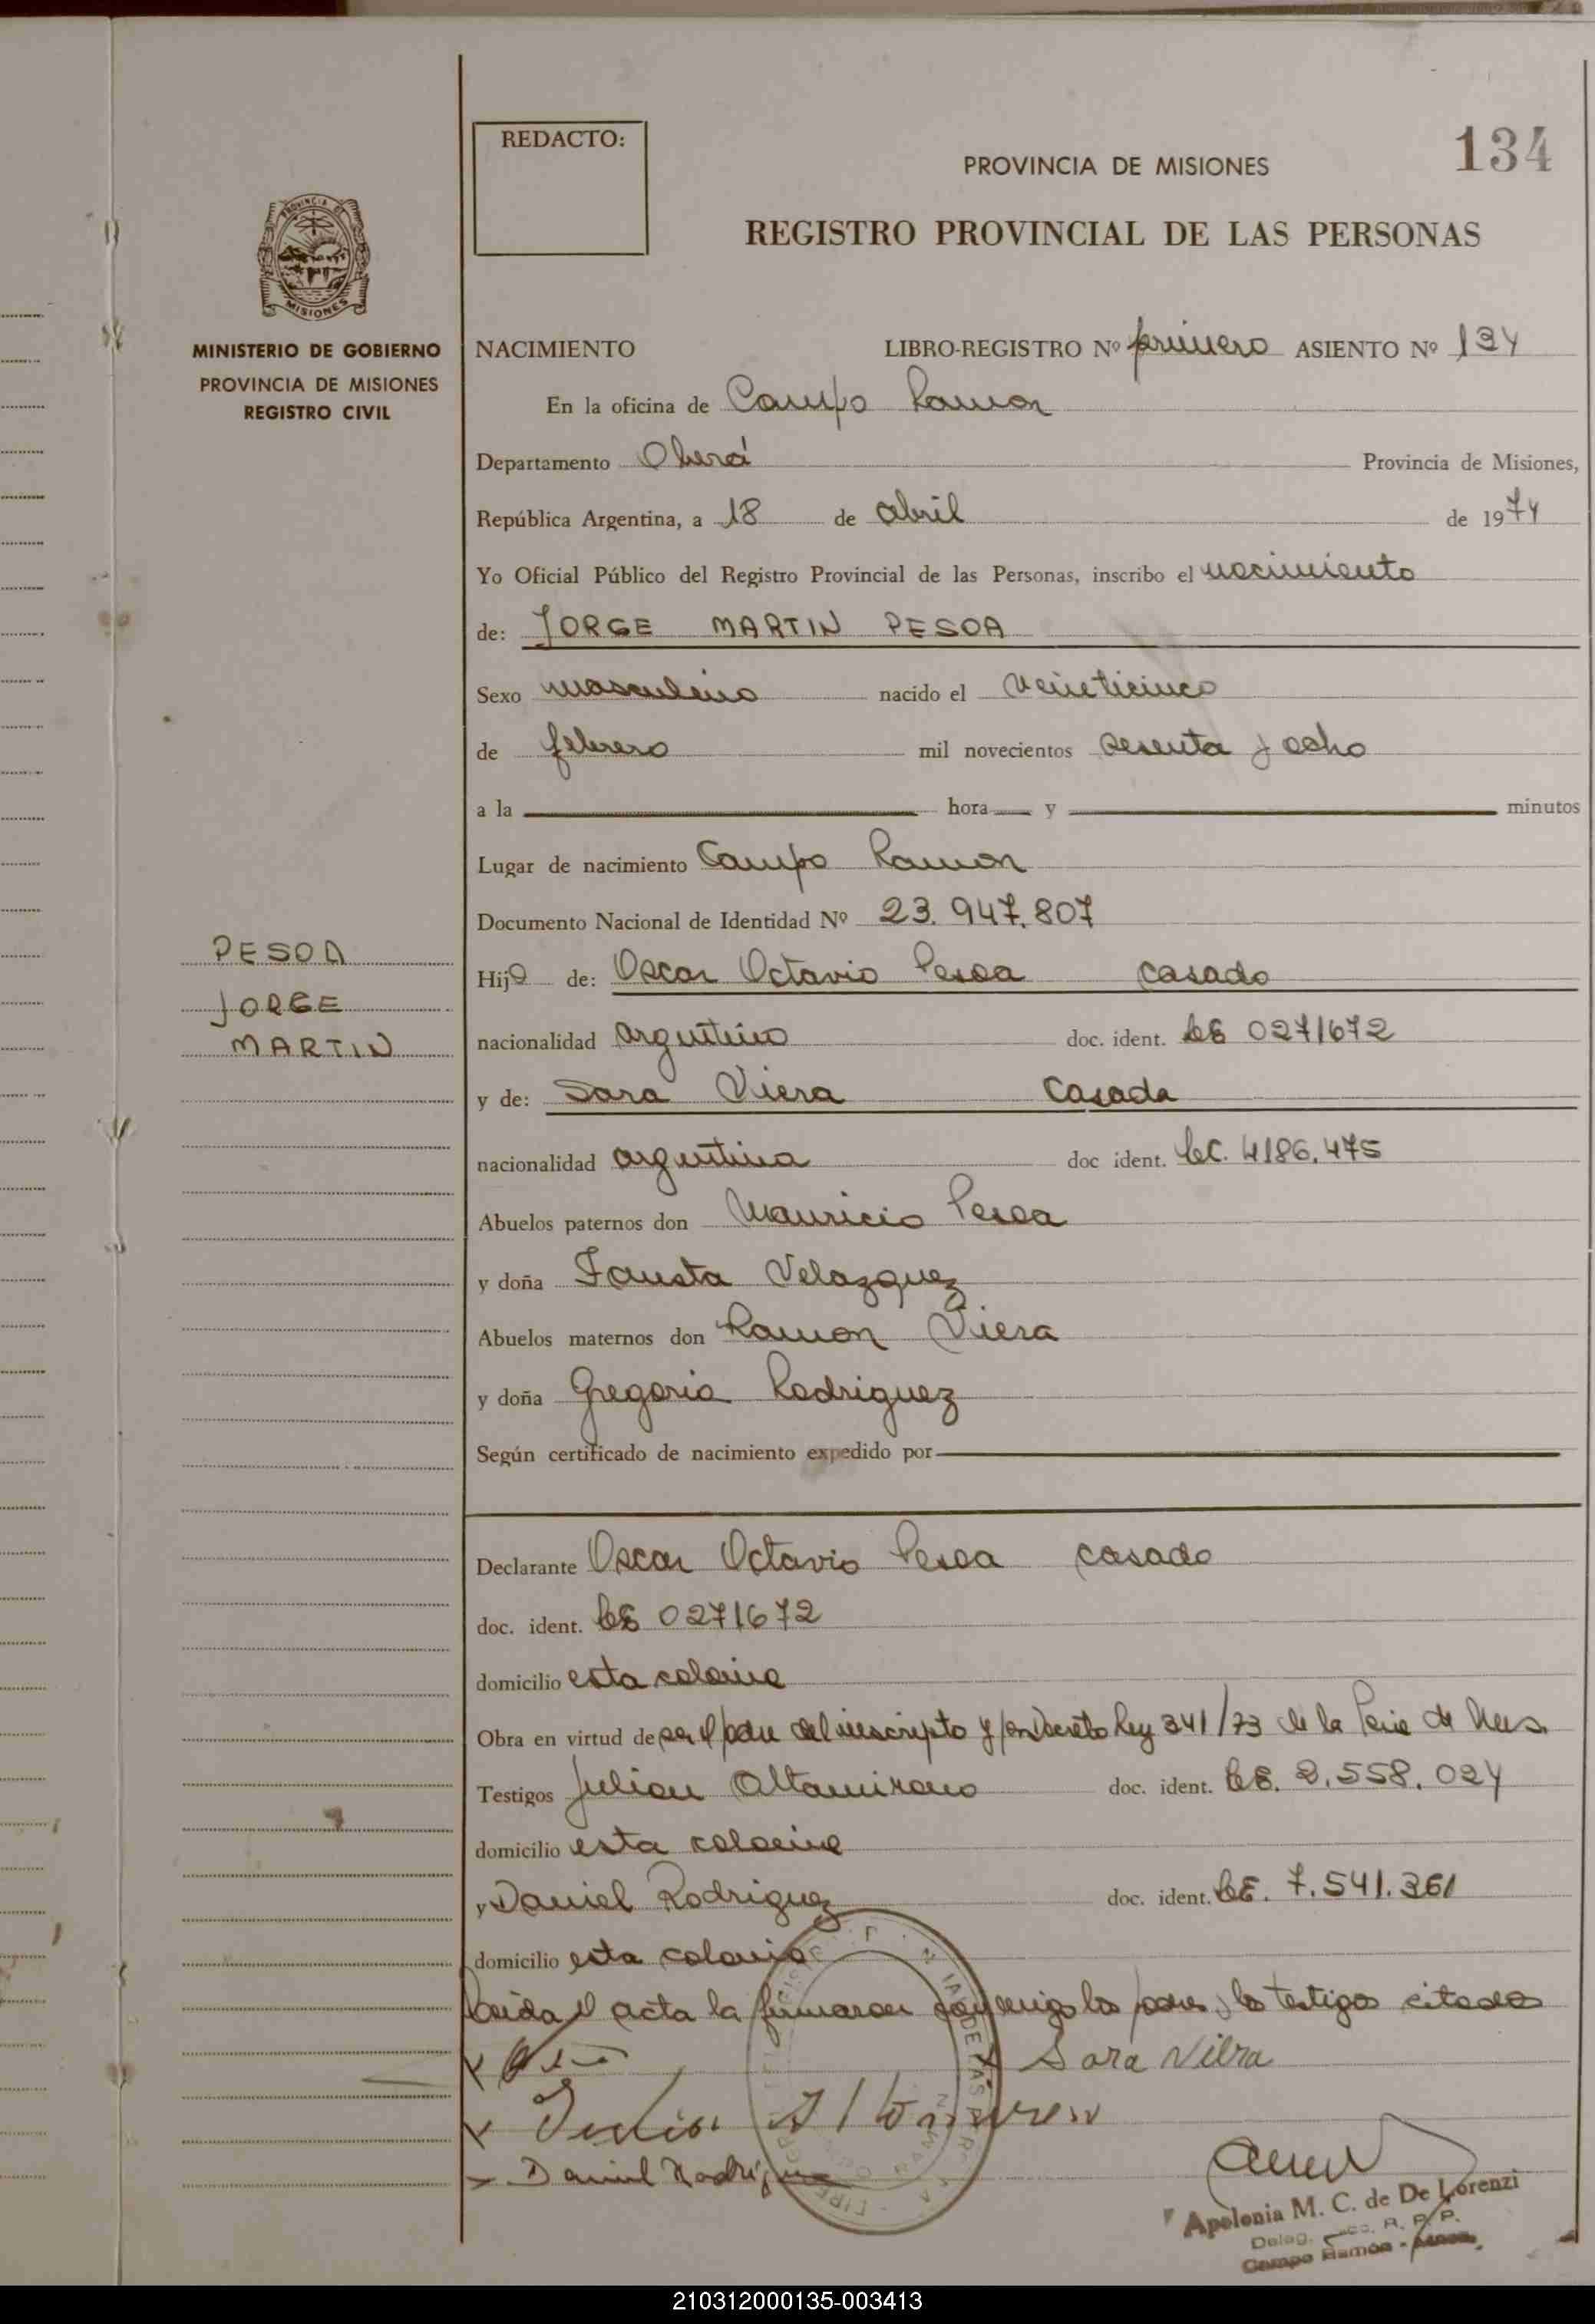 REDACTO:
134
PROVINCIA DE MISIONES
REGISTRO PROVINCIAL DE LAS PERSONAS
PROVINCIA DE
MISIONES
MINISTERIO DE GOBIERNO
PROVINCIA DE MISIONES
REGISTRO CIVIL
NACIMIENTO LIBRO-REGISTRO Nº primero ASIENTO Nº 134
En la oficina de Campo Ramon
Departamento Oberá Provincia de Misiones,
República Argentina, a 18 de abril de 1974
Yo Oficial Público del Registro Provincial de las Personas, inscribo el nacimiento
de: JORGE MARTIN PESOA
Sexo masculino nacido el veinticinco
de febrero mil novecientos sesenta y ocho
a la hora y minutos
Lugar de nacimiento Campo Ramon
Documento Nacional de Identidad Nº 23.947.807
PESOA
JORGE
MARTIN
Hijo de: Oscar Octavio Pesoa casado
nacionalidad argentino doc. ident. LE 0271672
y de: Sara Viera Casada
nacionalidad argentina doc ident. LC. 4186.475
Abuelos paternos don Mauricio Pesoa
y doña Fausta Velazquez
Abuelos maternos don Ramon Viera
y doña Gregoria Rodriguez
Según certificado de nacimiento expedido por
Declarante Oscar Octavio Pesoa casado
doc. ident. LE 0271672
domicilio esta colonia
Obra en virtud de ser el padre del inscripto y Decreto Ley 341/73 de la de
Testigos Julian Altamirano doc. ident. LE. 2.558.024
domicilio esta colonia
y Daniel Rodriguez doc. ident. LE. 7.541.361
domicilio esta colonia
Leida el acta la firmaron conmigo los padres y los testigos citados
Sara Viera
Daniel Rodriguez
Apolonia M. C. de De Lorenzi
Deleg. R. P. P.
Campo Ramón -
210312000135-003413